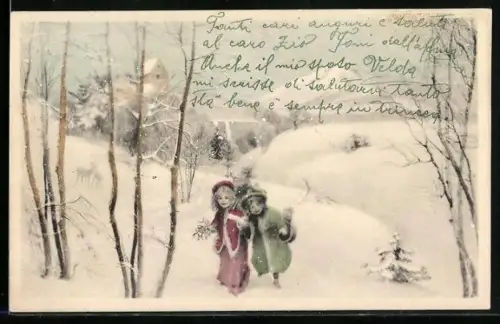 Tanti cari auguri e saluti
al caro Zio Toni dall'aff.ma
Anche il mio sposo Velda
mi scrisse di salutarvi tanto
sta bene e sempre in trincea.